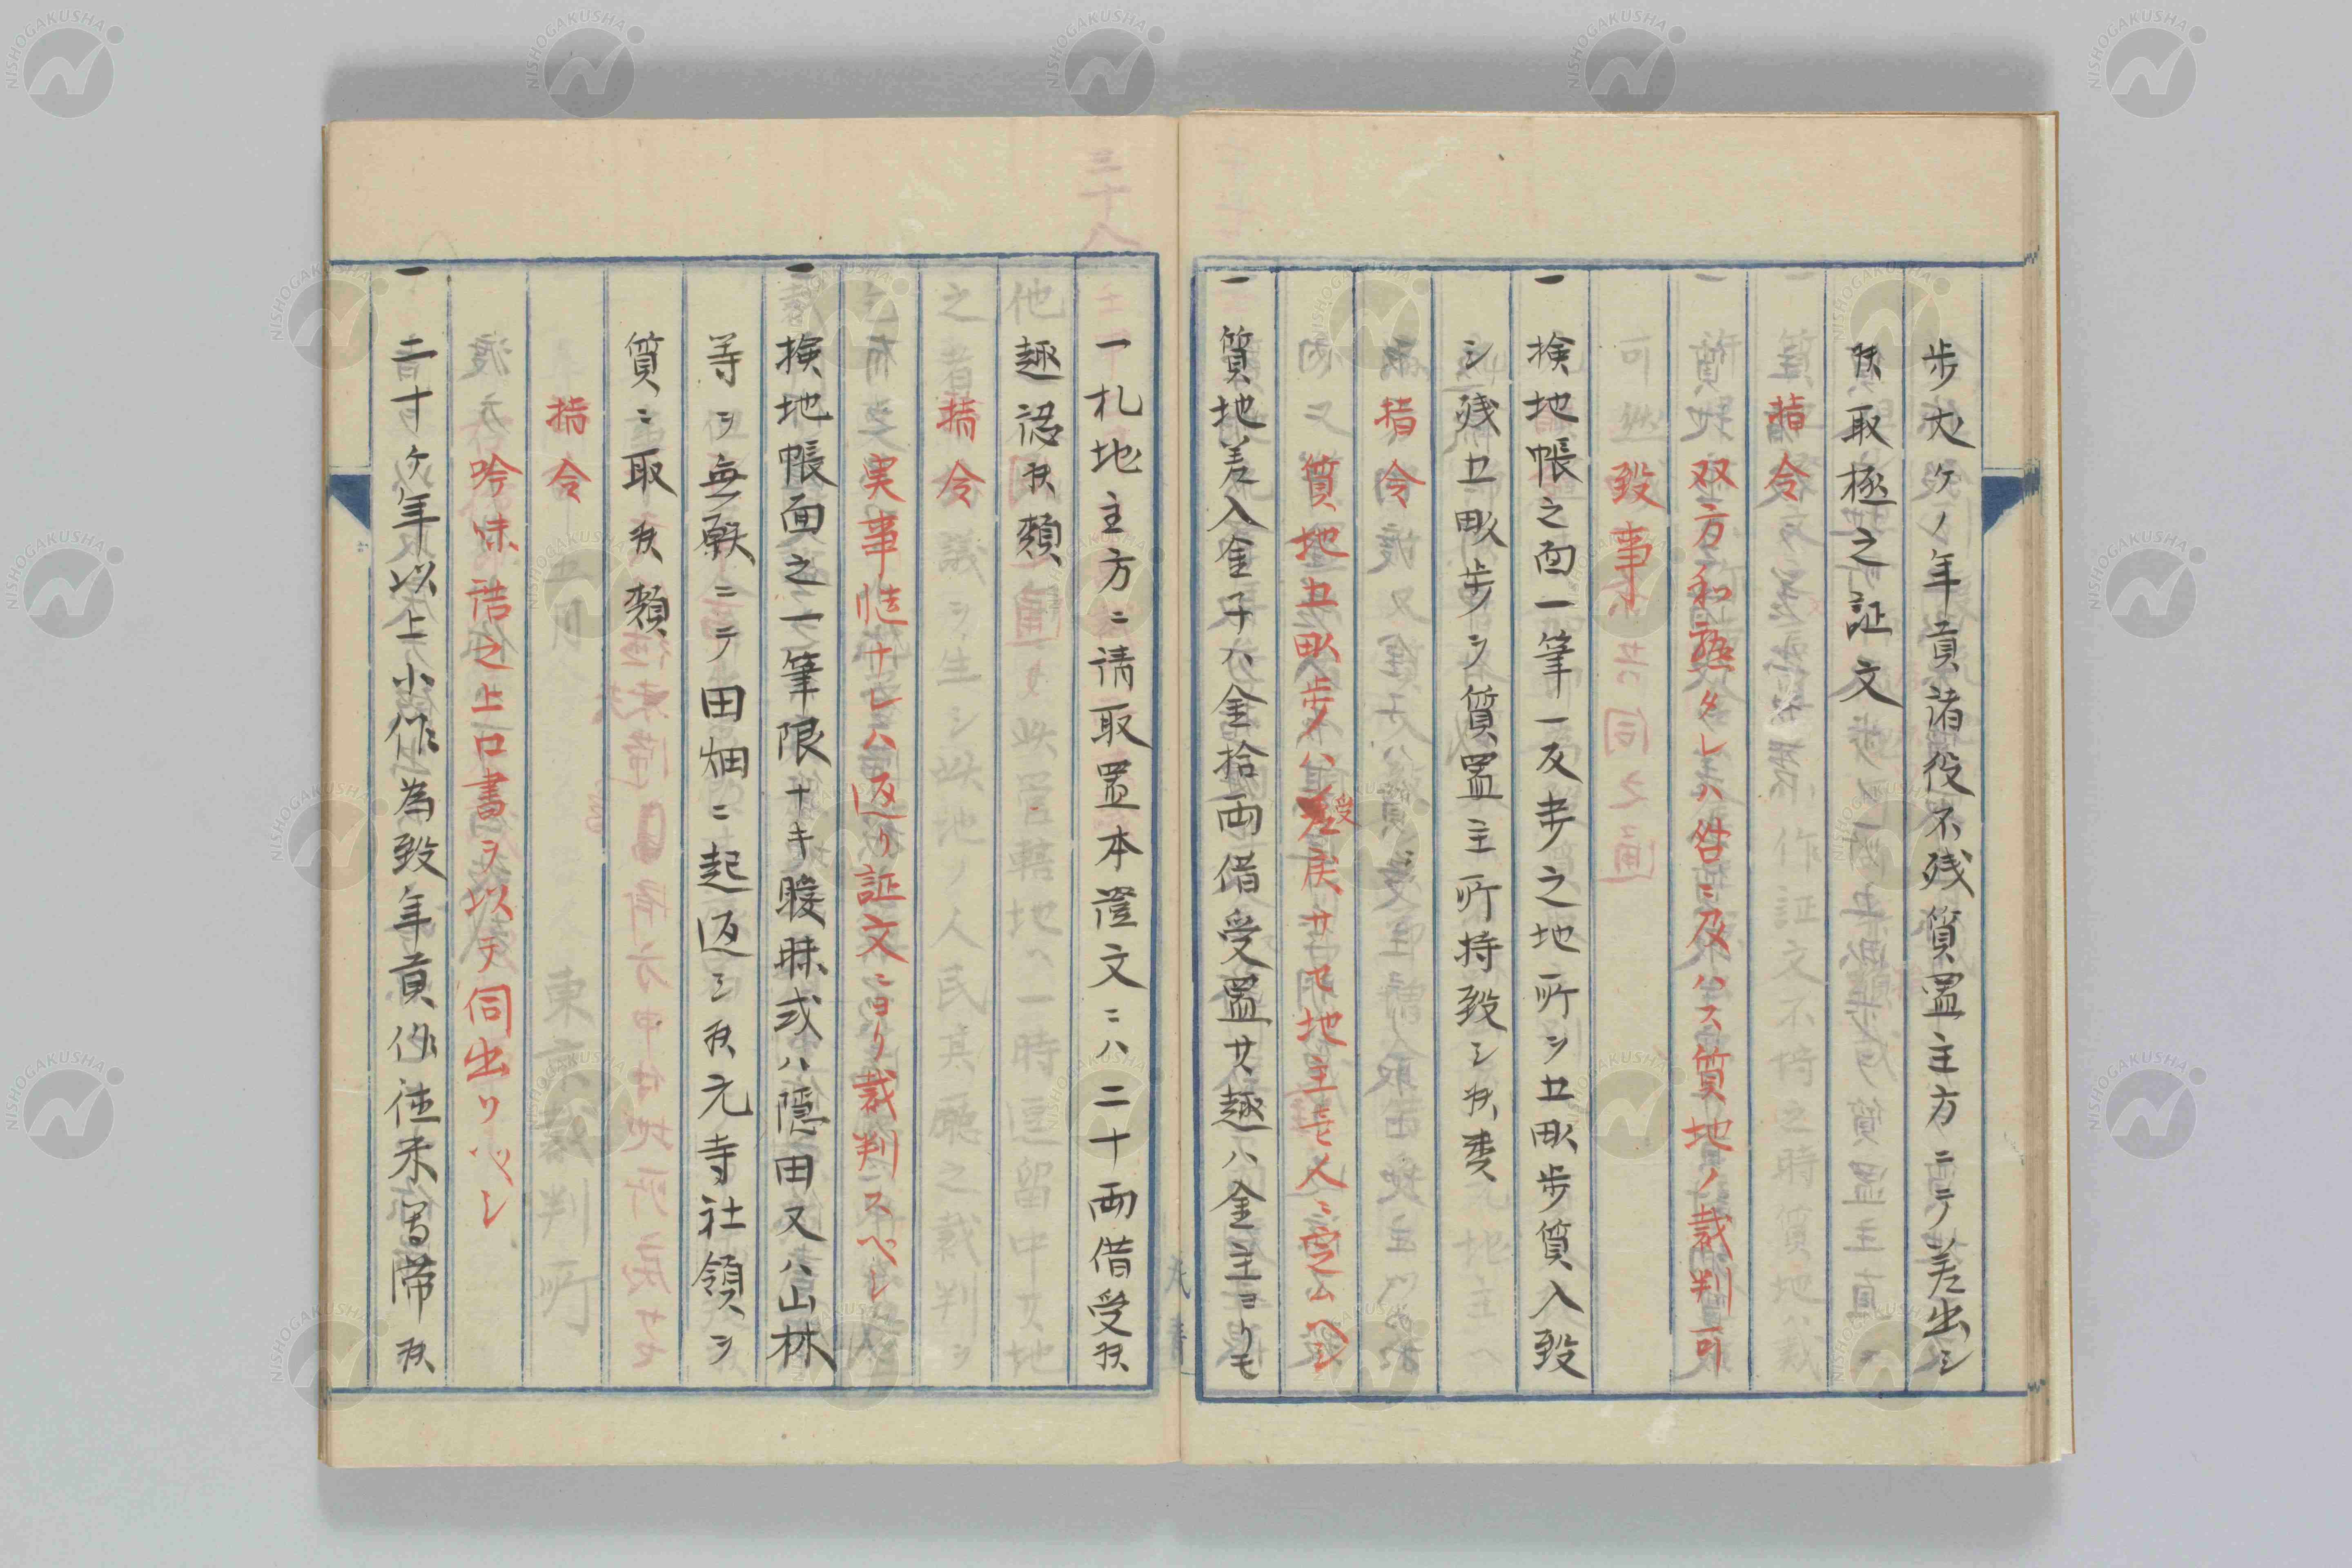 歩丈ケノ年貢諸役不残質置主方ニテ差出シ
候取極之証文
指令
双方和熟タレハ咎ニ及ハス質地ノ裁判可
致事
一 検地帳之面一筆一反歩之地所ヲ五畝歩質入致
シ残五畝歩ヲ質置主所持致シ候類
指令
質地五畝歩ノハ受戻サセ地主壱人ニ定ムヘシ
一 質地差入金子ハ金拾両借受置其趣ハ金主ヨリモ
一札地主方ニ請取置本證文ニハ二十両借受候
趣認候類
指令
実事慥ナレハ返リ証文ニヨリ裁判スヘシ
一 検地帳面之一筆限ナキ曖昧或ハ隠田又ハ山林
等ヲ無願ニテ田畑ニ起返シ候元寺社領ヲ
質ニ取候類
指令
吟味詰之上口書ヲ以テ伺出ツヘシ
一 二十ケ年以上小作為致年貢作徳米等滞候
NISHOGAKUSHA